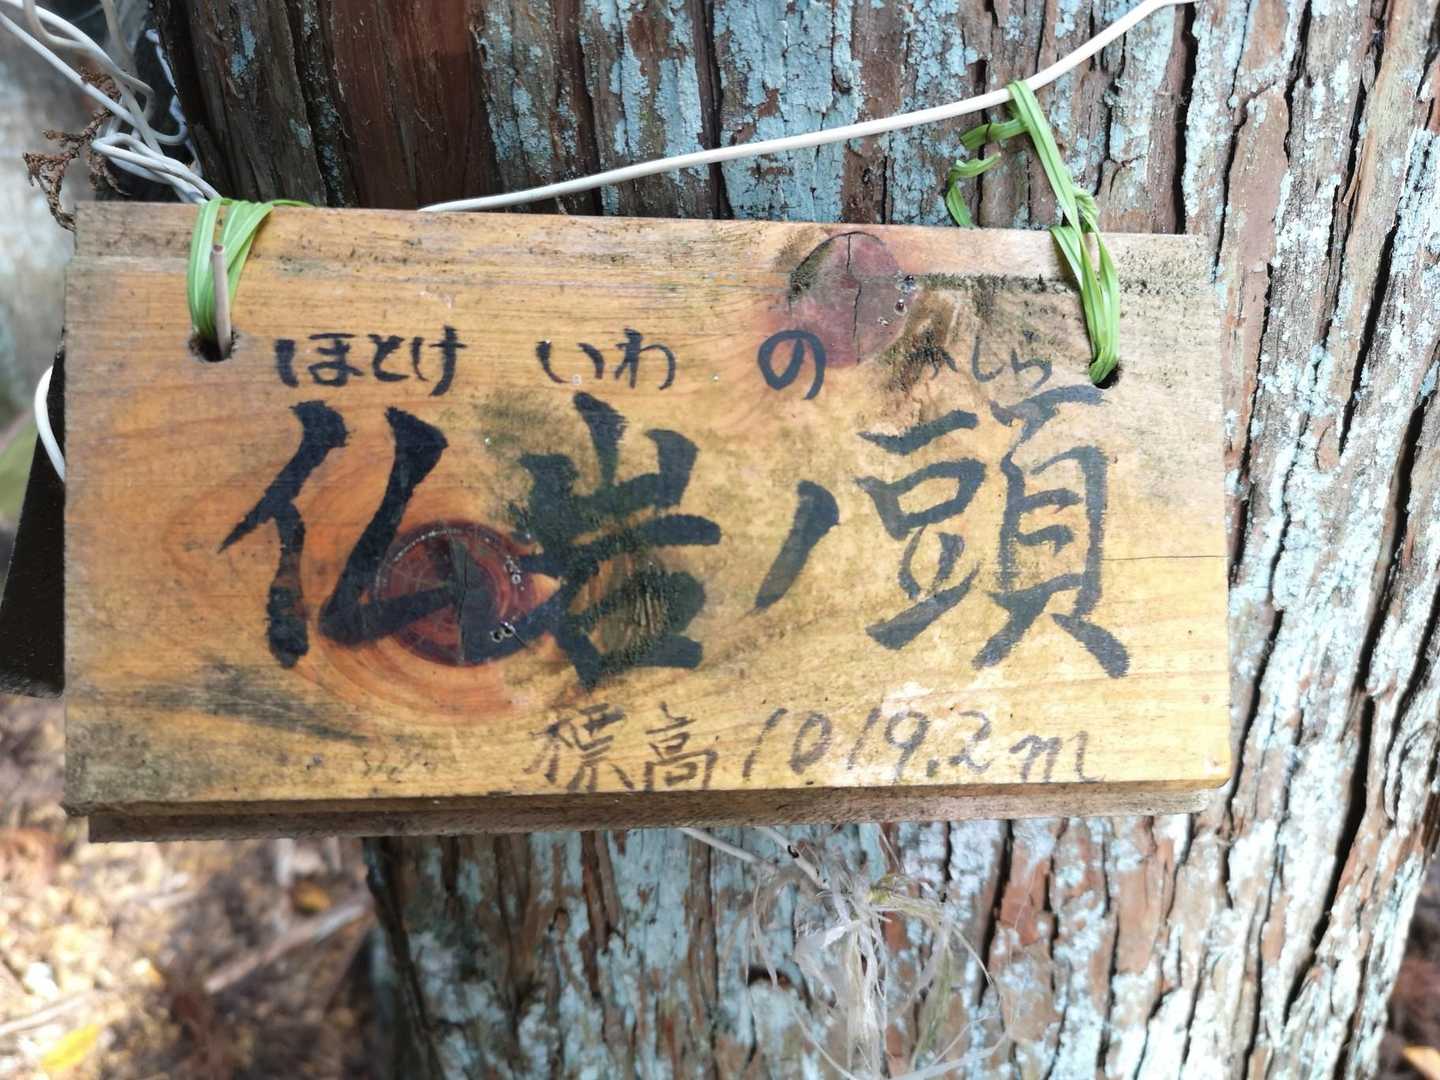 ほとけ いわ の かしら
仏岩ノ頭
標高1019.2m